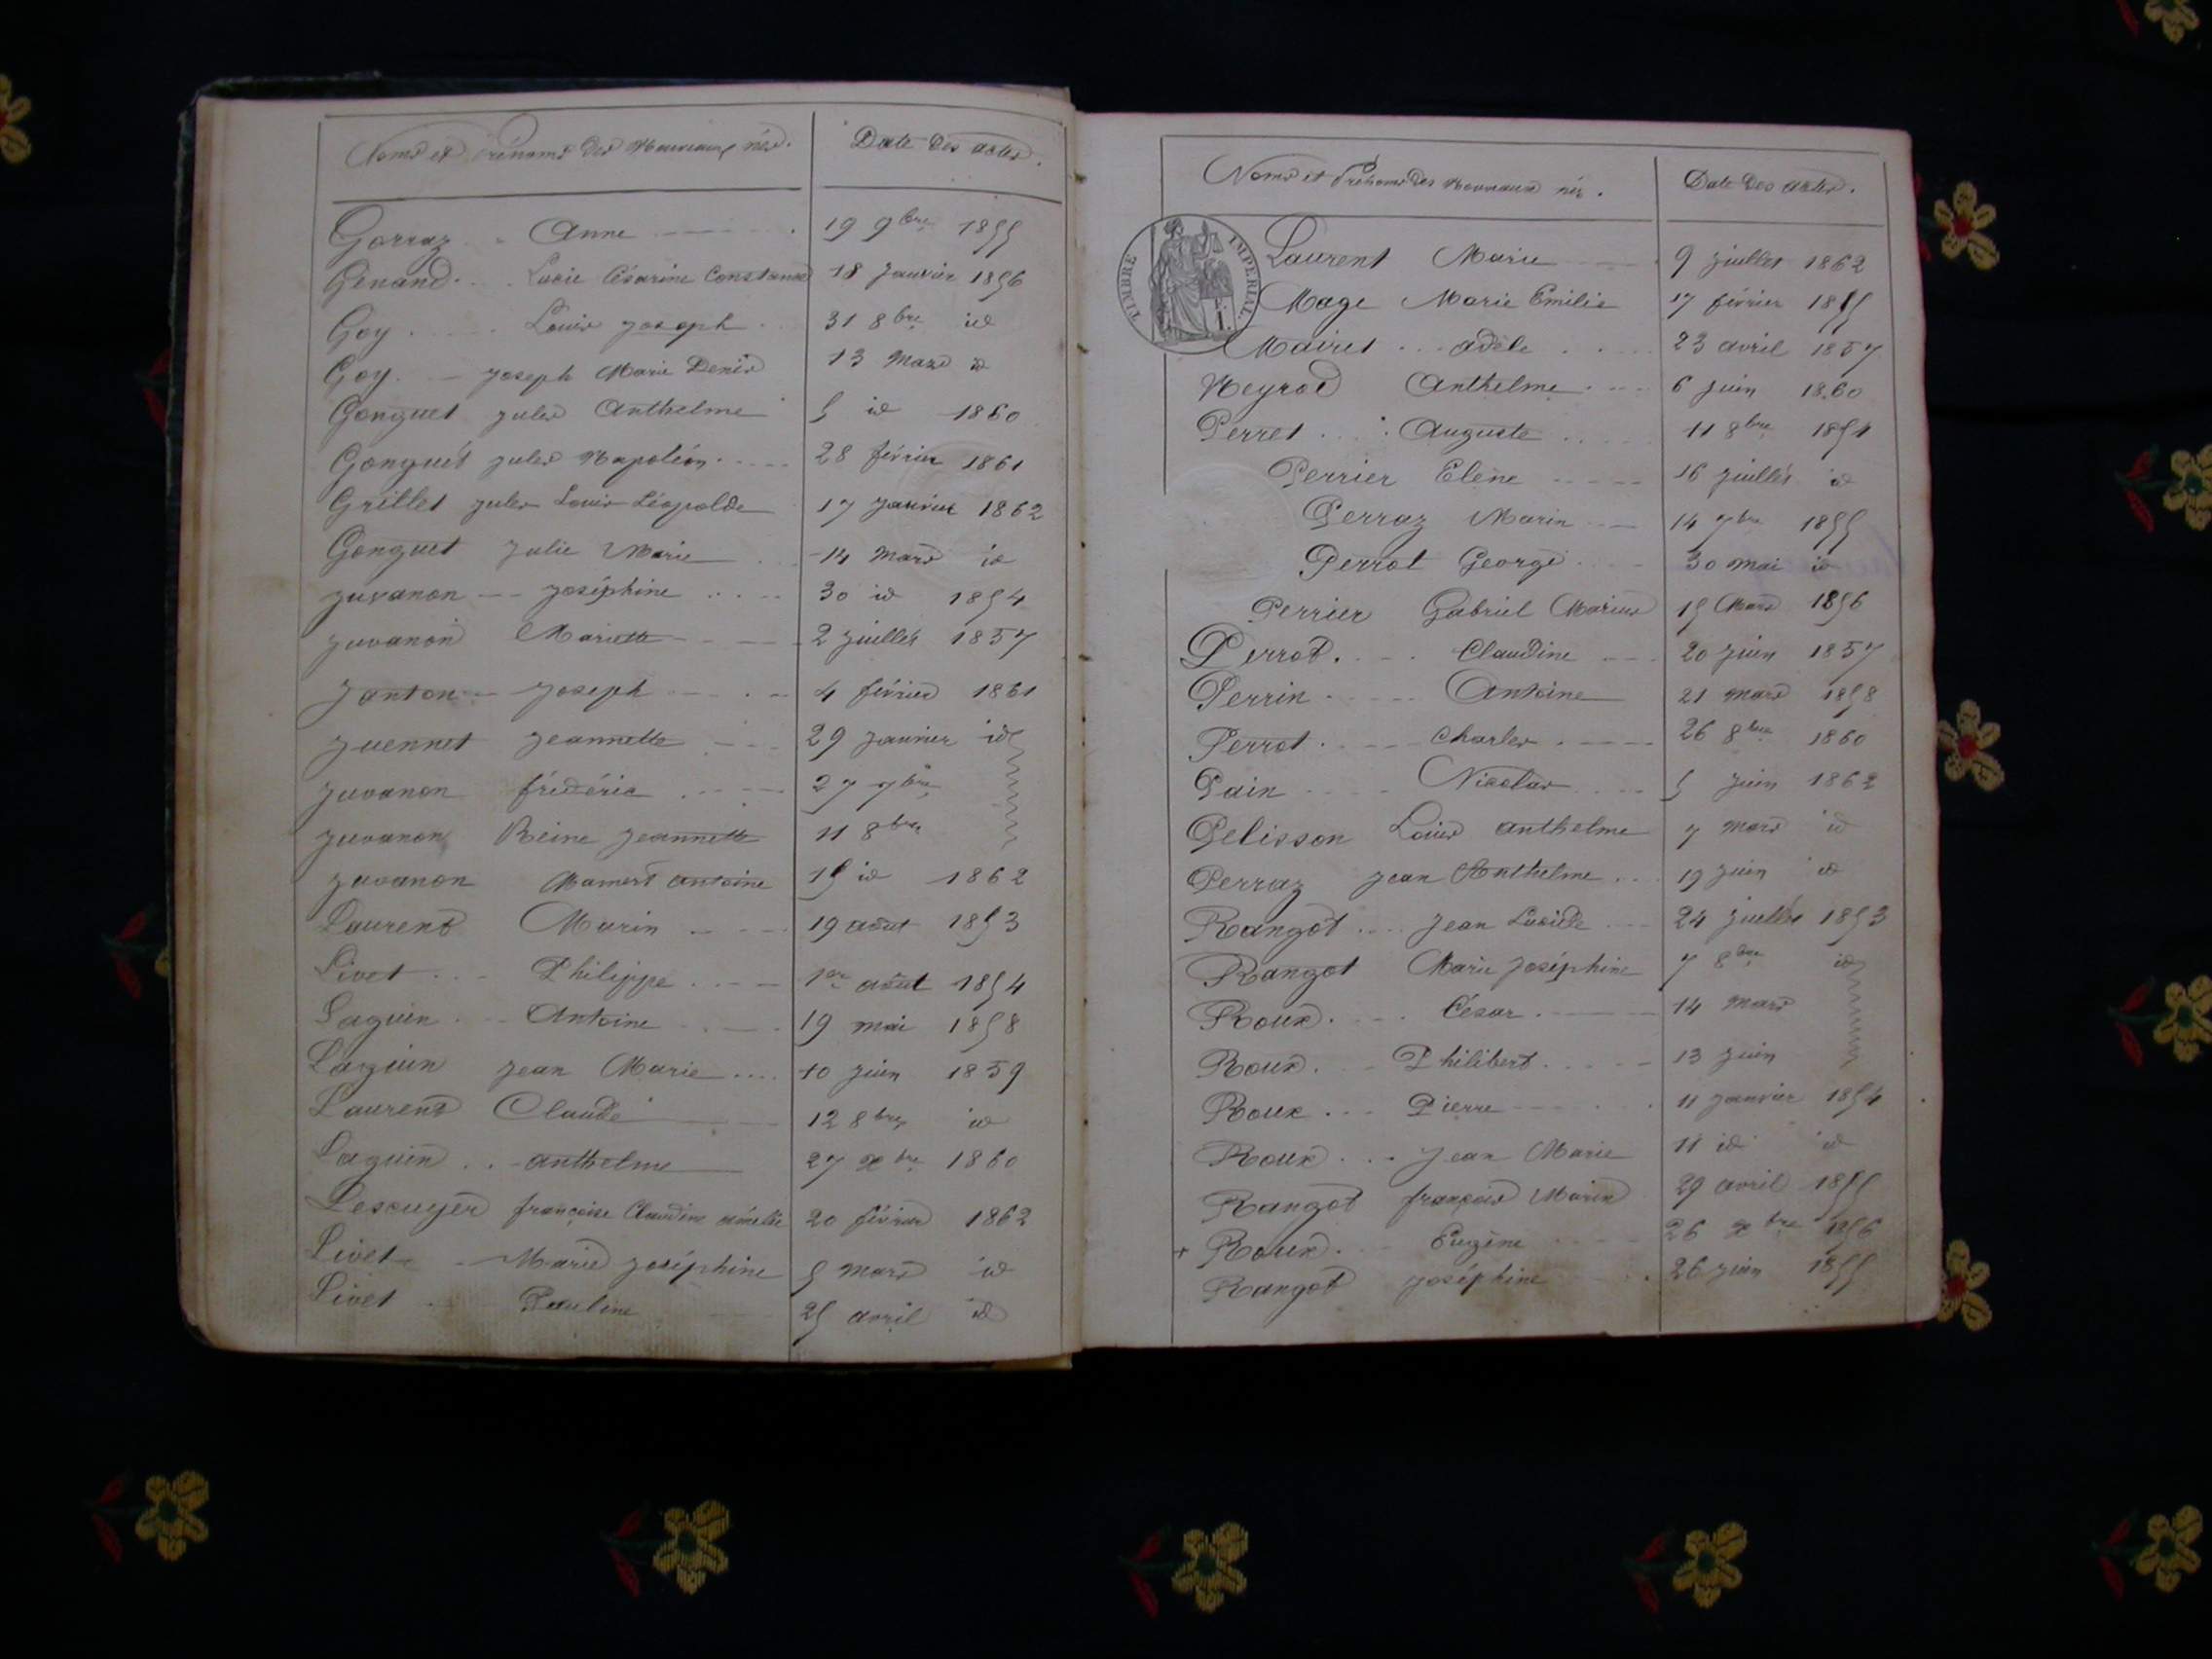 Noms et Prénoms des Nouveaux nés. Date des actes.
Gorraz Anne 19 9bre 1855
Genand Lucie Césarine Constance 18 Janvier 1856
Goy Louis Joseph 31 8bre id
Goy Joseph Marie Denis 13 Mars id
Gonguet Jules Anthelme 5 id 1860
Gonguet Jules Napoléon 28 février 1861
Grillet Jules Louis Léopolde 17 Janvier 1862
Gonguet Julie Marie 14 Mars id
Juvanon Joséphine 30 id 1854
Juvanon Mariette 2 Juillet 1857
Janton Joseph 4 février 1861
Juennet Jeannette 29 Janvier id
Juvanon frédéric 27 7bre
Juvanon Reine Jeannette 11 8bre
Juvanon Mamert Antoine 15 id 1862
Laurent Marin 19 août 1853
Livet Philippe 1er août 1854
Laguin Antoine 19 mai 1858
Laguin Jean Marie 10 Juin 1859
Laurent Claude 12 8bre id
Laguin anthelme 27 xbre 1860
Lescuyer françoise Claudine amélie 20 février 1862
Livet Marie Joséphine 5 Mars id
Livet Pauline 25 avril id
Noms et Prénoms des Nouveaux nés. Date des actes.
TIMBRE IMPERIAL
Laurent Marie 9 Juillet 1862
Mage Marie Emilie 17 février 1855
Mairet adèle 23 avril 1857
Neyrod Anthelme 6 Juin 1860
Perret Auguste 11 8bre 1854
Perrier Elène 16 Juillet id
Perraz Marin 14 7bre 1855
Perrot George 30 mai id
Perrier Gabriel Marius 15 Mars 1856
Perrot Claudine 20 Juin 1857
Perrin Antoine 21 Mars 1858
Perrot Charles 26 8bre 1860
Pain Nicolas 5 Juin 1862
Pelisson Louis anthelme 7 Mars id
Perraz Jean Anthelme 19 Juin id
Rangot Jean 24 Juillet 1853
Rangot Marie Joséphine 7 8bre id
Roux César 14 Mars
Roux Philibert 13 Juin
Roux Pierre 11 Janvier 1854
Roux Jean Marie 11 id id
Rangot françois Marin 29 avril 1855
+ Roux Eugène 26 xbre 1856
Rangot Joséphine 26 Juin 1855